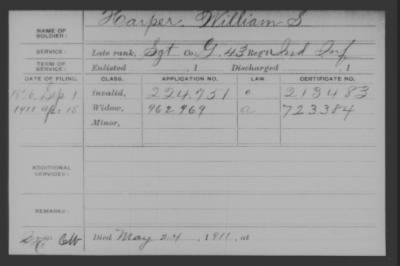 Harper, William S
NAME OF SOLDIER:
SERVICE: Late rank, Sgt Co. G, 43 Reg't Ind Inf
TERM OF SERVICE: Enlisted , 1 Discharged , 1
DATE OF FILING. CLASS. APPLICATION NO. LAW. CERTIFICATE NO.
Sep 1 Invalid, 224,751 213483
1911 Apr 15 Widow, 962.969 a 723384
Minor,
ADDITIONAL SERVICES:
REMARKS:
Died May 24, 1911, at